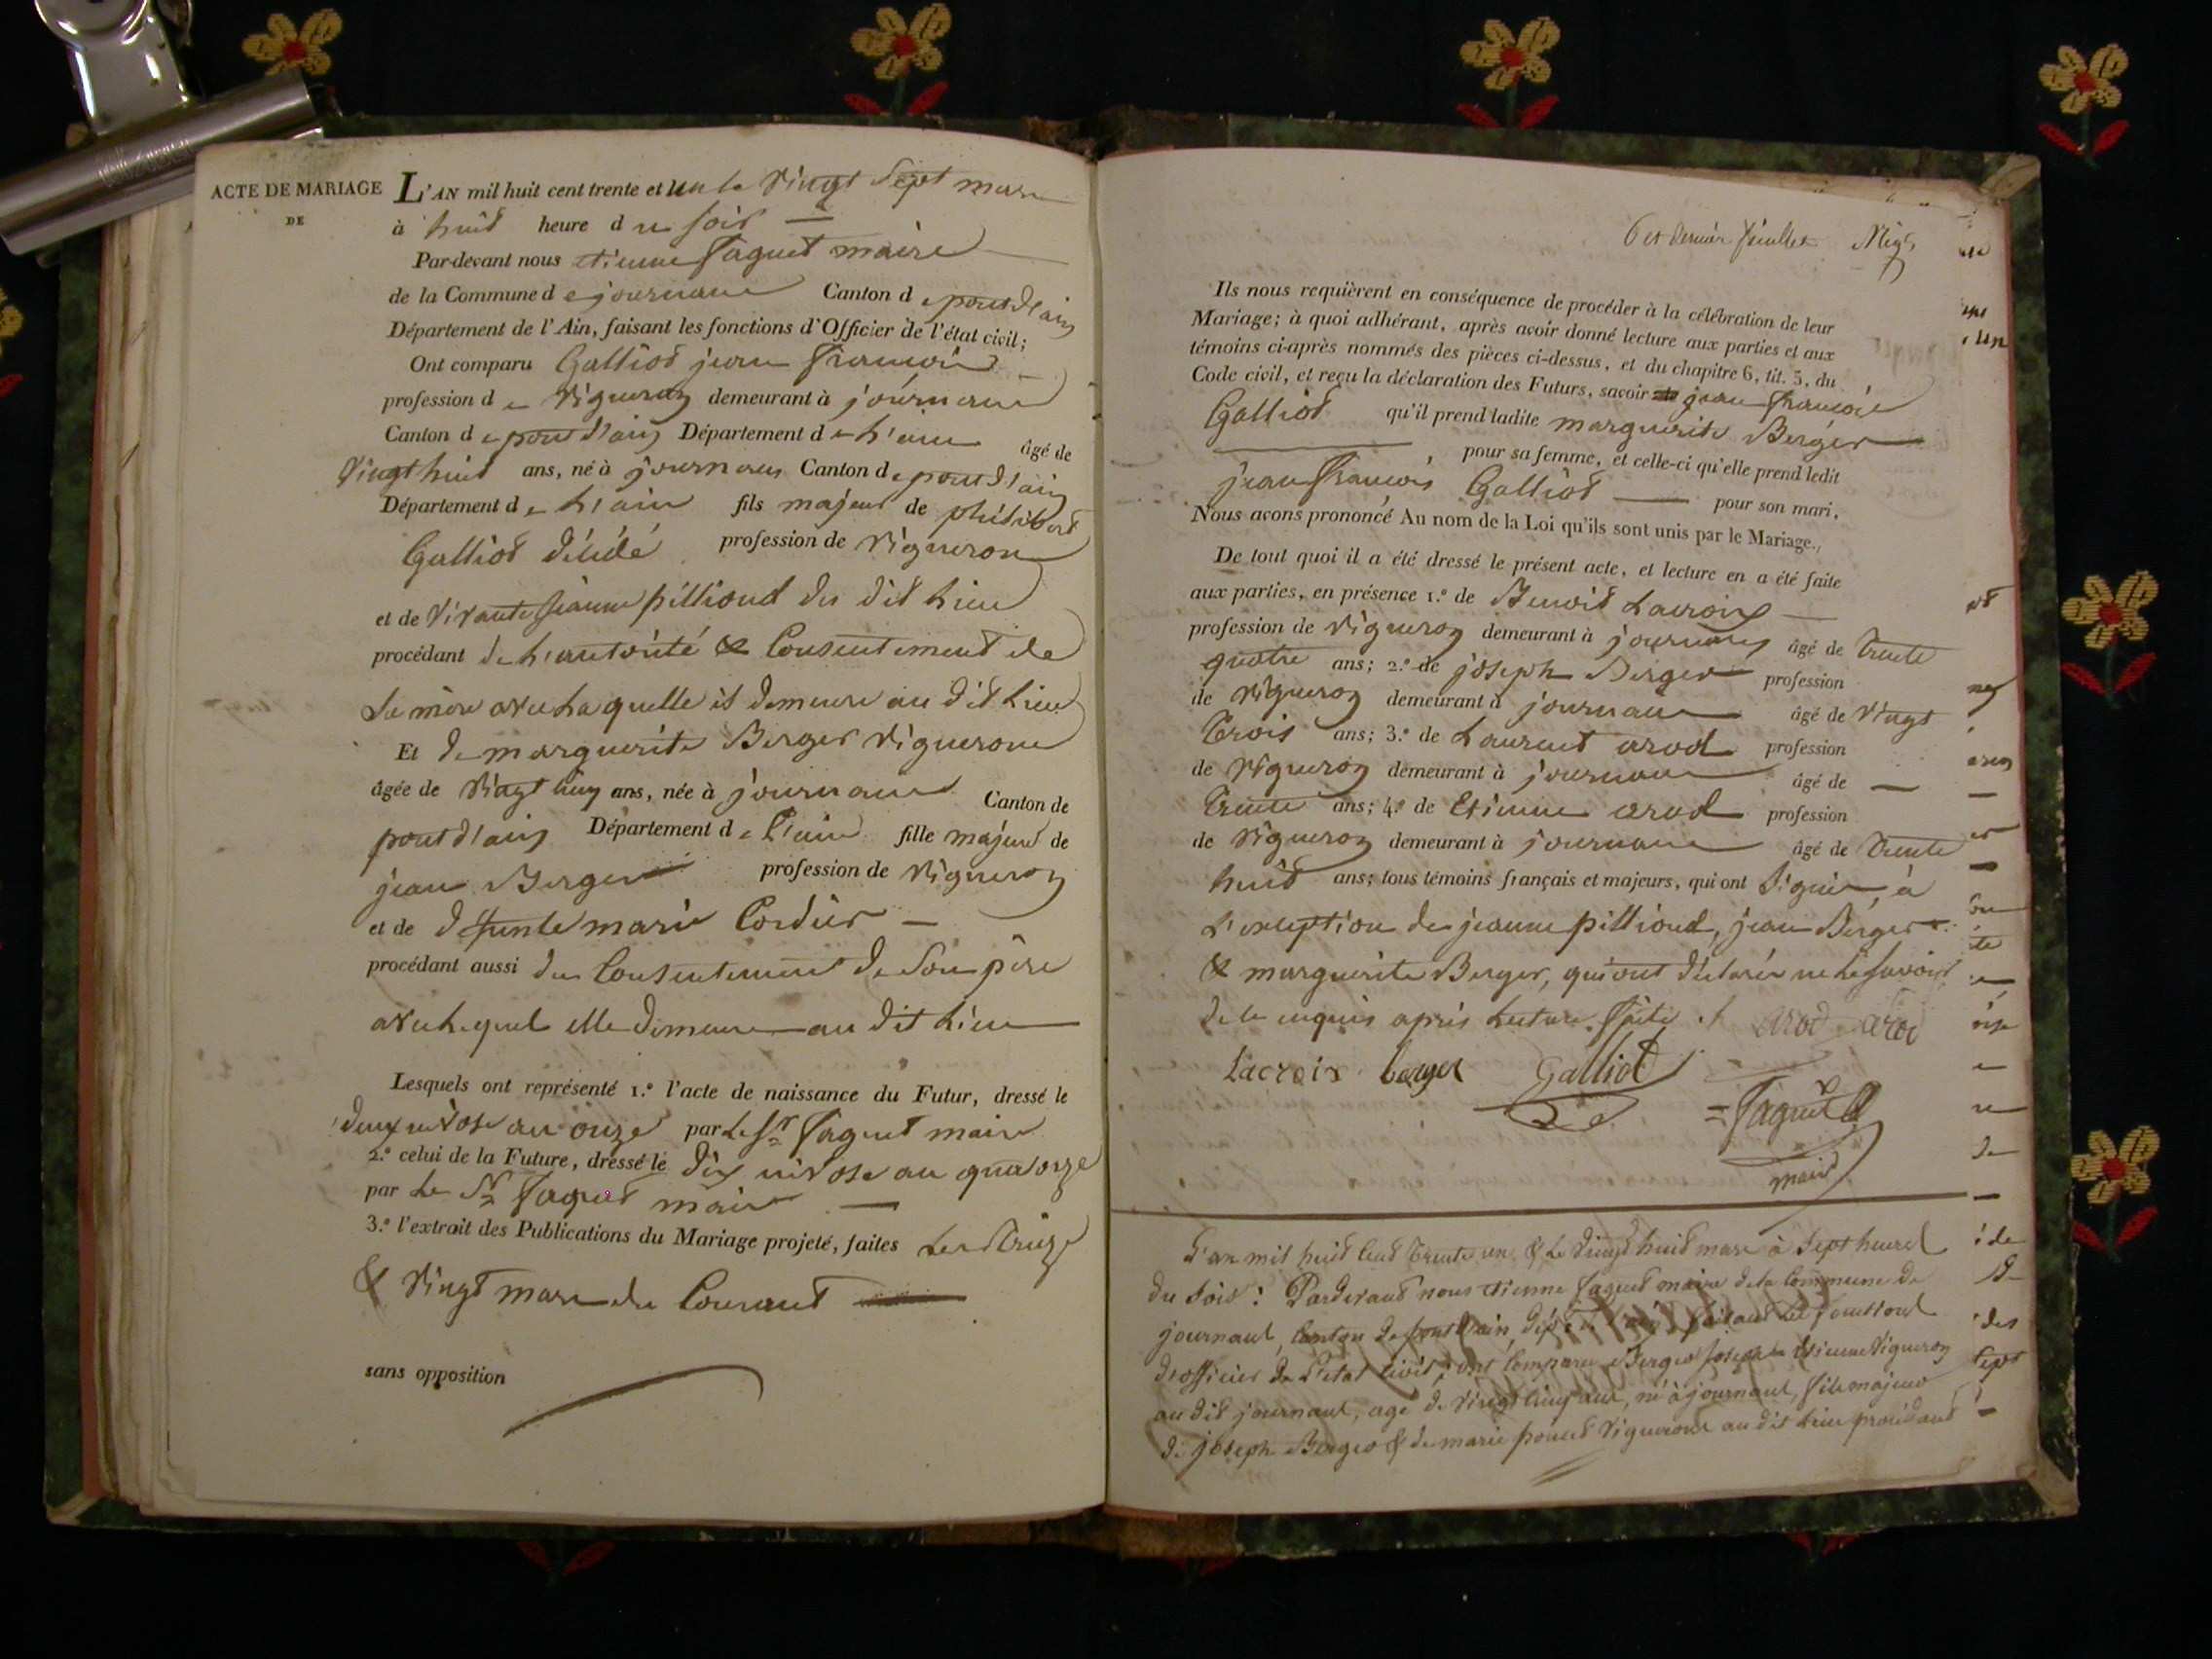 ACTE DE MARIAGE
DE
L'AN mil huit cent trente et un le vingt sept mars
à huit heure du soir
Par-devant nous etienne faguet maire
de la Commune de journans Canton de pont d'ain
Département de l'Ain, faisant les fonctions d'Officier de l'état civil;
Ont comparu Galliod jean françois
profession de vigneron demeurant à journans
Canton de pont d'ain Département de l'ain âgé de
vingt huit ans, né à journans Canton de pont d'ain
Département de l'ain fils majeur de philibert
Galliod décédé profession de vigneron
et de vivante jeanne pillioud du dit lieu
procédant de l'autorité & Consentement de
sa mère avec laquelle il demeure au dit lieu
Et de marguerite Berger vigneronne
âgée de vingt cinq ans, née à journans Canton de
pont d'ain Département de l'ain fille majeure de
jean Berger profession de vigneron
et de défunte marie Cordier
procédant aussi du Consentement de son père
avec lequel elle demeure au dit lieu
Lesquels ont représenté 1.º l'acte de naissance du Futur, dressé le
deux nivose an onze par le Sr faguet maire
2.º celui de la Future, dressé le dix nivose an quatorze
par le Sr faguet maire
3.º l'extrait des Publications du Mariage projeté, faites les treize
& vingt mars du Courant
sans opposition
6 et dernier feuillet
Ils nous requièrent en conséquence de procéder à la célébration de leur
Mariage; à quoi adhérant, après avoir donné lecture aux parties et aux
témoins ci-après nommés des pièces ci-dessus, et du chapitre 6, tit. 5, du
Code civil, et reçu la déclaration des Futurs, savoir jean françois
Galliod qu'il prend ladite marguerite Berger
, pour sa femme, et celle-ci qu'elle prend ledit
jean françois Galliod pour son mari,
Nous avons prononcé Au nom de la Loi qu'ils sont unis par le Mariage.
De tout quoi il a été dressé le présent acte, et lecture en a été faite
aux parties, en présence 1.º de Benoit Lacroix
profession de vigneron demeurant à journans âgé de trente
quatre ans; 2.º de joseph Berger profession
de vigneron demeurant à journans âgé de vingt
trois ans; 3.º de Laurent arod profession
de vigneron demeurant à journans âgé de
trente ans; 4.º de Etienne arod profession
de vigneron demeurant à journans âgé de trente
huit ans; tous témoins français et majeurs, qui ont signés, à
L'exception de jeanne pillioud, jean Berger
& marguerite Berger, qui ont déclarés ne le savoir
de ce enquis après lecture faite ./. arod arod
Lacroix berger Galliod
faguet
maire
L'an mil huit Cent trente un, & le vingt huit mars à sept heures
du soir: Pardevant nous etienne faguet maire de la Commune de
journans, Canton de pont d'ain, dépt de l'ain, faisant les fonctions
d'officier de l'état Civil; ont Comparu Berger joseph etienne vigneron
au dit journans, agé de vingt cinq ans, né à journans, fils majeur
de joseph Berger & de marie poncet vignerons au dit lieu procédant